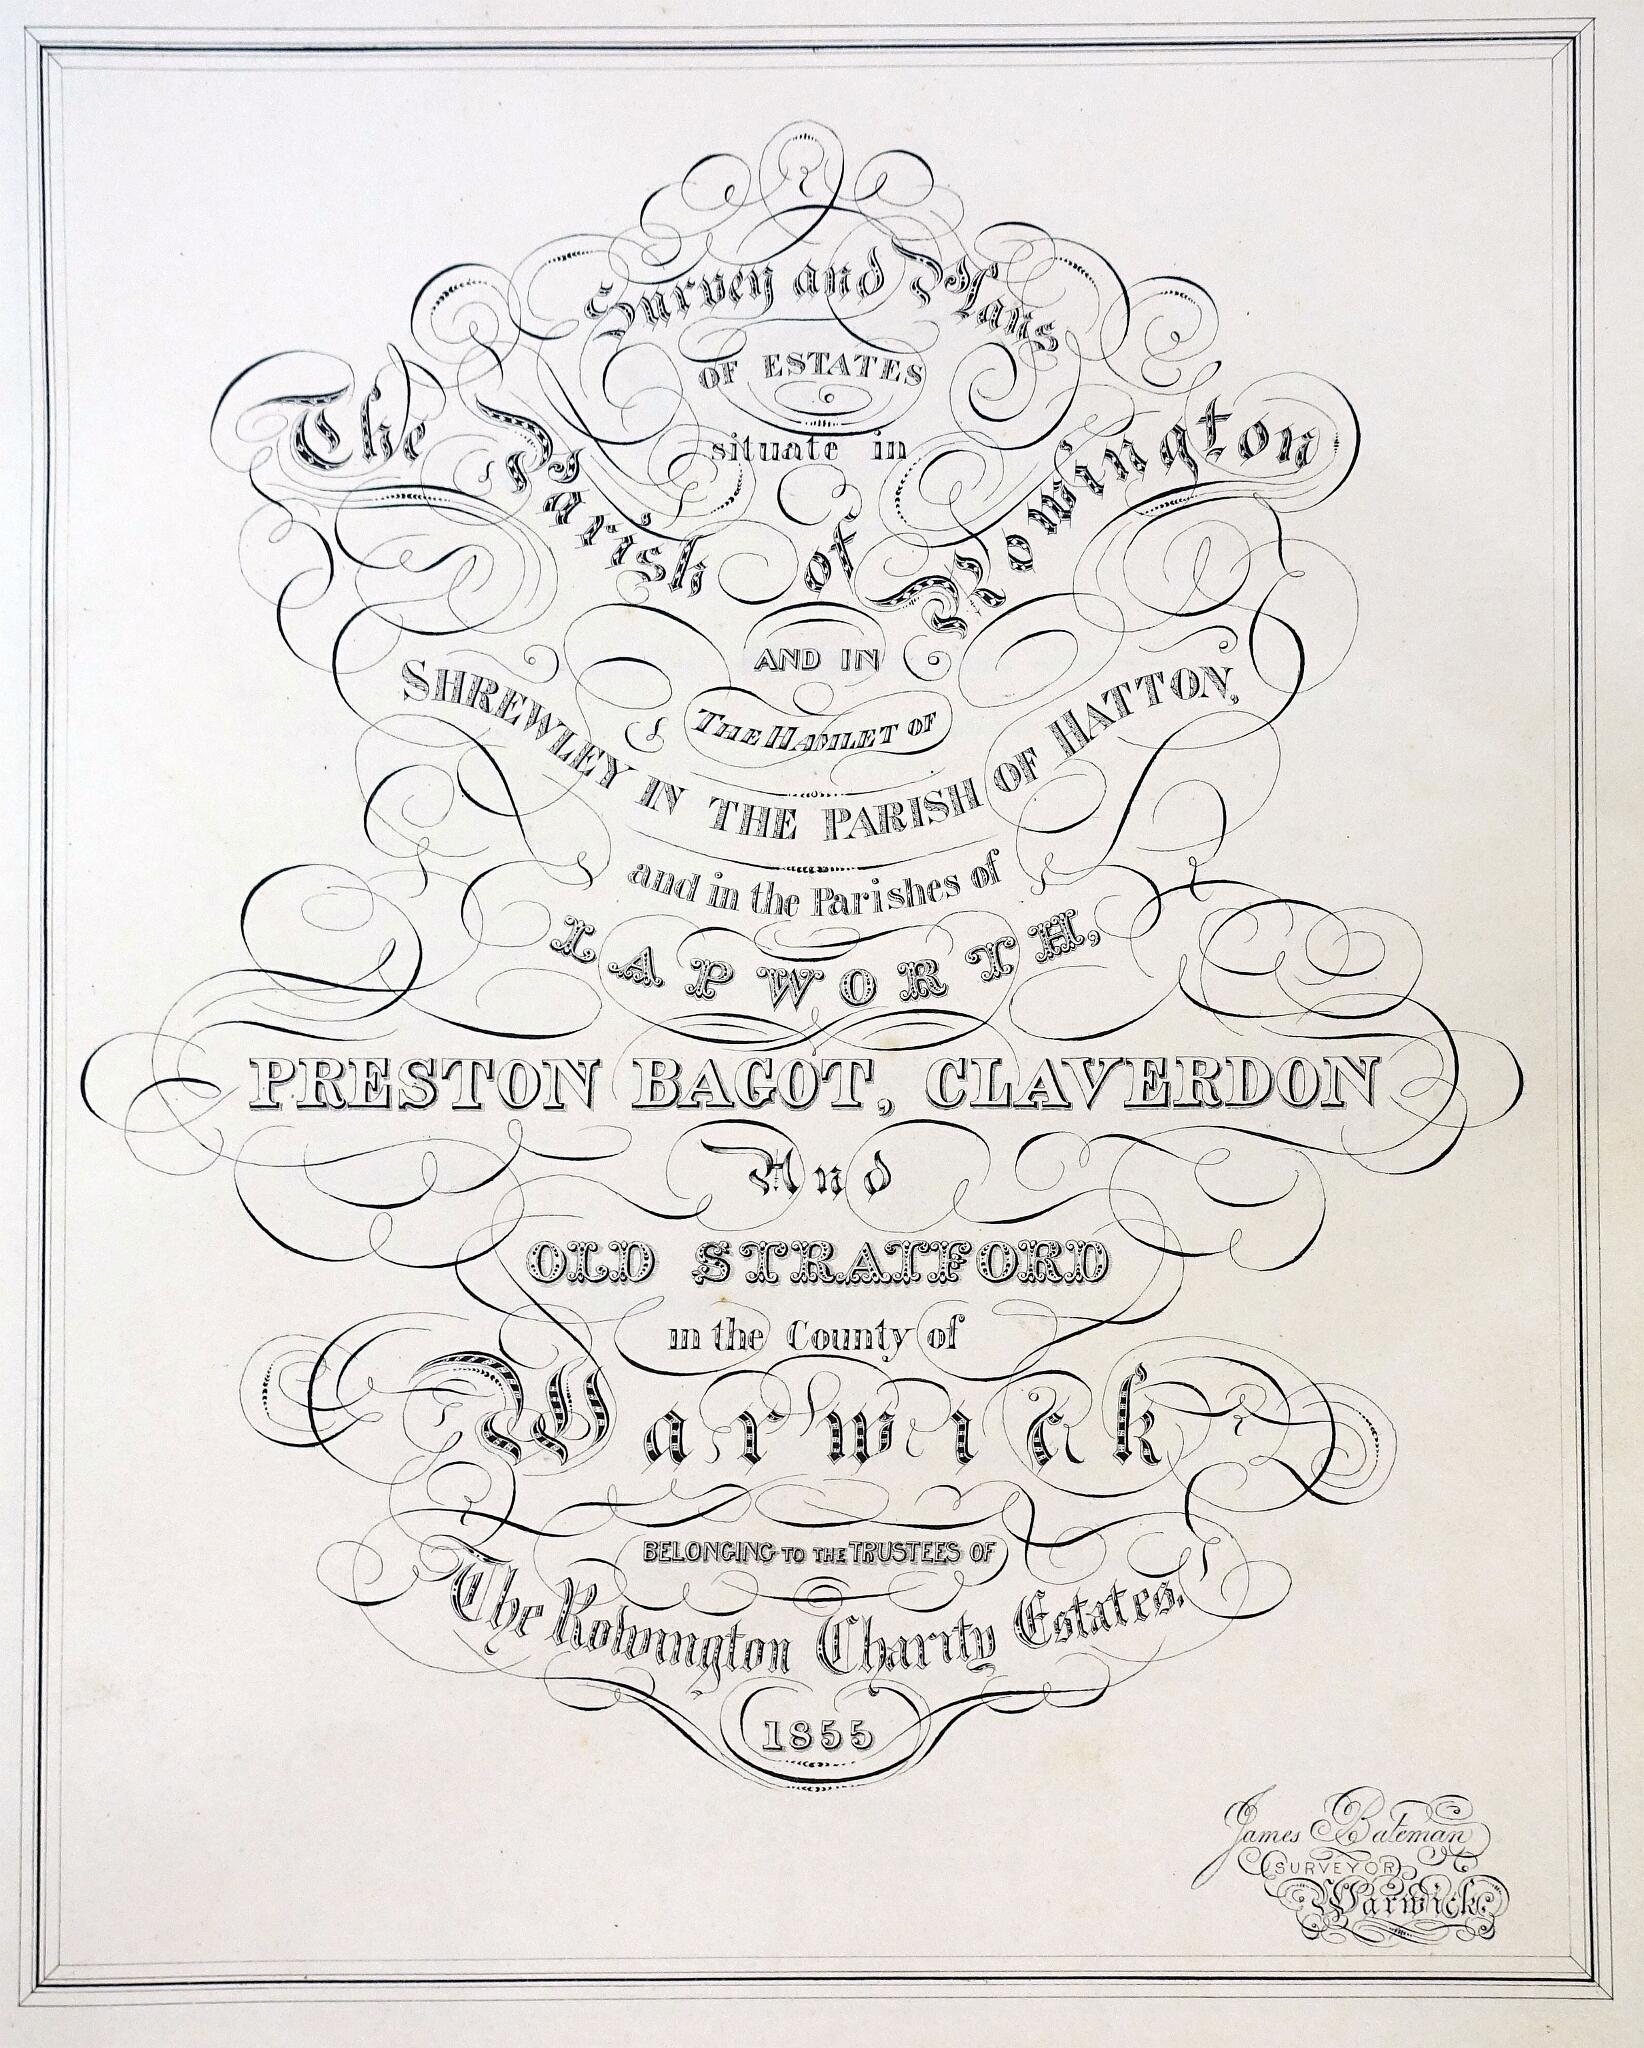 Survey and Plans
OF ESTATES
situate in
The Parish of Rowington
AND IN
THE HAMLET OF
SHREWLEY IN THE PARISH OF HATTON,
and in the Parishes of
LAPWORTH,
PRESTON BAGOT, CLAVERDON
And
OLD STRATFORD
in the County of
Warwick
BELONGING TO THE TRUSTEES OF
The Rowington Charity Estates.
1855
James Bateman
SURVEYOR
Warwick